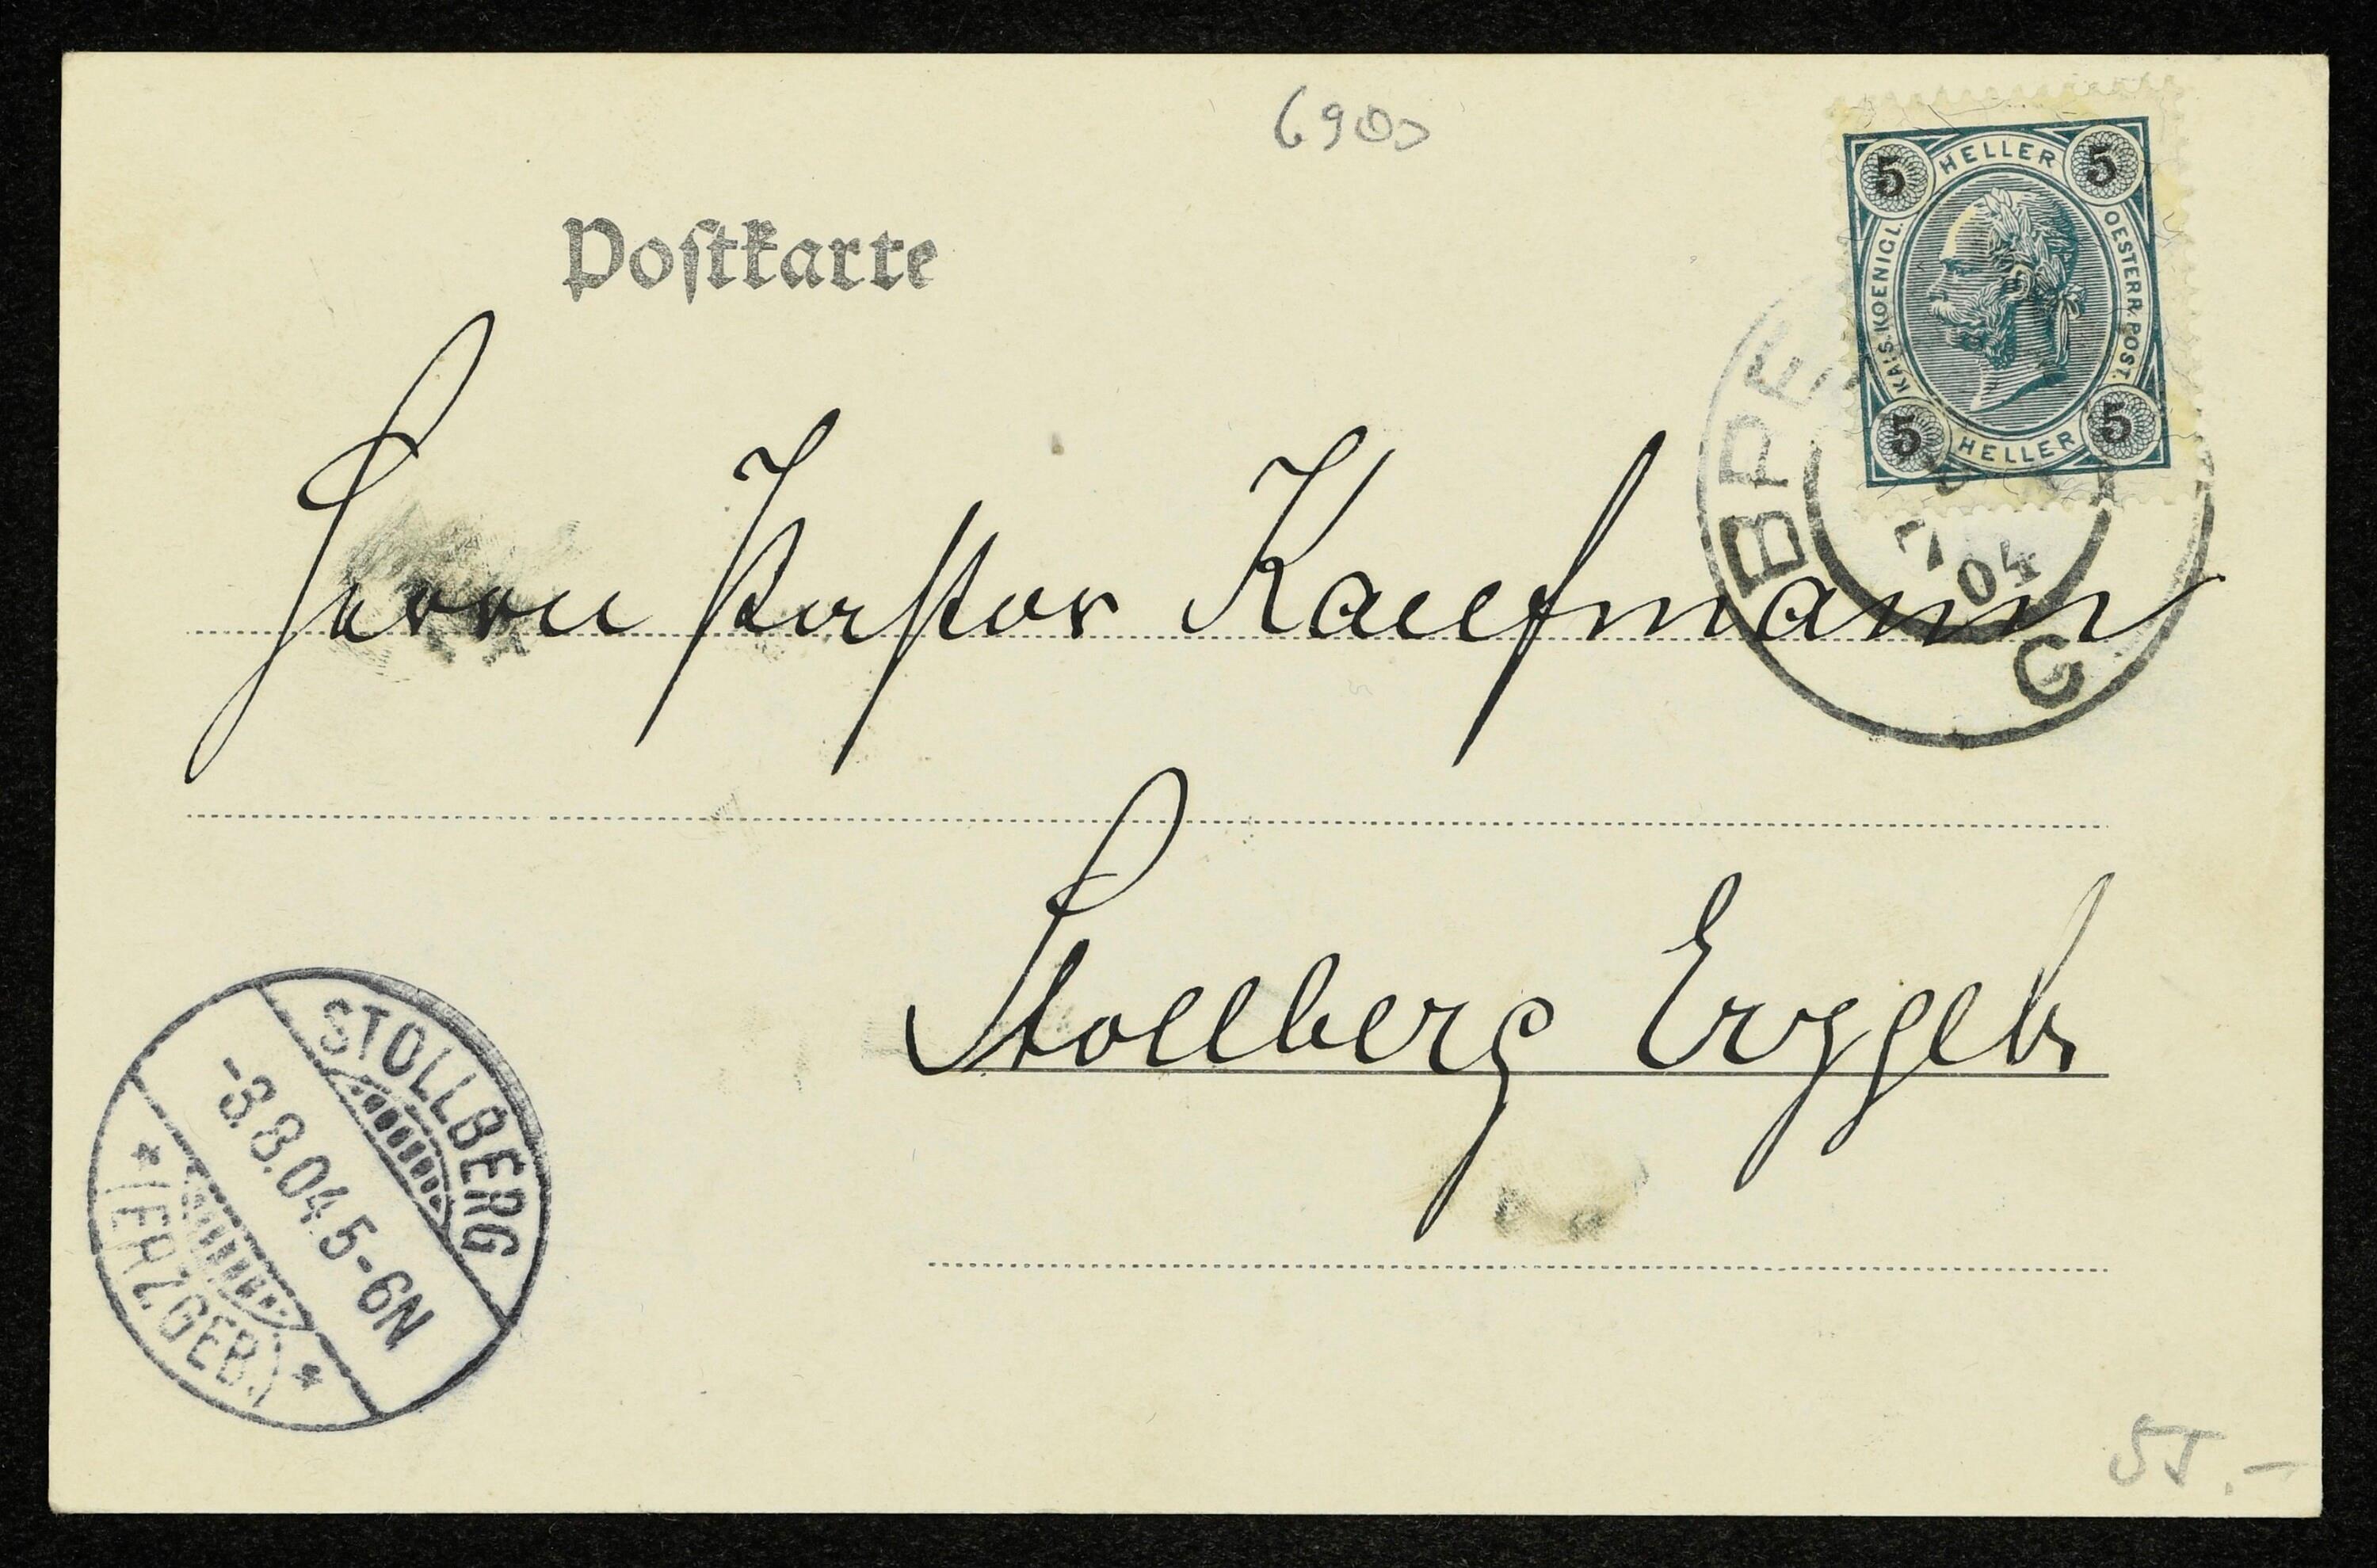 6900
Postkarte
5 HELLER 5
KAIS. KOENIGL.
OESTERR. POST.
5 HELLER 5
04
C
Herrn Pastor Kaufmann
Stollberg Erzgeb
STOLLBERG
-8.8.04.5-6N
* (ERZGEB.) *
55.-